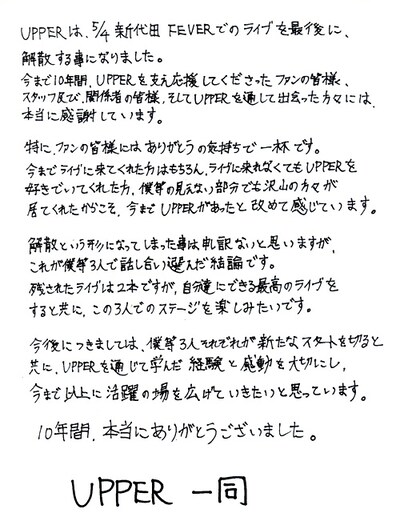 UPPERは、5/4 新代田 FEVERでのライブを最後に、
解散する事になりました。
今まで10年間、UPPERを支え応援してくださったファンの皆様、
スタッフ及び、関係者の皆様、そしてUPPERを通して出会った方々には、
本当に感謝しています。
特に、ファンの皆様にはありがとうの気持ちで一杯です。
今までライブに来てくれた方はもちろん、ライブに来れなくてもUPPERを
好きでいてくれた方、僕等の見えない部分でも沢山の方々が
居てくれたからこそ、今までUPPERがあったと改めて感じています。
解散という形になってしまった事は申し訳ないと思いますが、
これが僕等3人で話し合い選んだ結論です。
残されたライブは2本ですが、自分達にできる最高のライブを
すると共に、この3人でのステージを楽しみたいです。
今後につきましては、僕等3人それぞれが新たなスタートを切ると
共に、UPPERを通じて学んだ経験と感動を大切にし、
今まで以上に活躍の場を広げていきたいと思っています。
10年間、本当にありがとうございました。
UPPER 一同